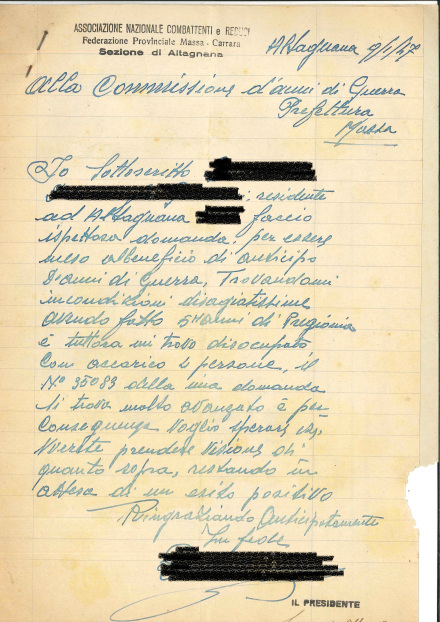 ASSOCIAZIONE NAZIONALE COMBATTENTI e REDUCI
Federazione Provinciale Massa - Carrara
Sezione di Altagnana
Altagnana 9/1/47
Alla Commissione d'anni di Guerra
Prefettura
Massa
Io Sottoscritto
residente
ad Altagnana faccio
ispettosa domanda, per essere
meso albeneficio di anticipo
Danni di Guerra, Trovandomi
incondizioni disagiatissime
avendo fatto 5 anni di Pregionia
è tuttora mi trovo disocupato
Con accarico 4 persone, il
N° 35083 della mia domanda
si trova molto avanzato è per
Conseguenza Voglio sperare
Vorrete prendere Visione di
quanto sopra, restando in
attesa di un esito positivo
Ringraziando Anticipatamente
In fede
IL PRESIDENTE